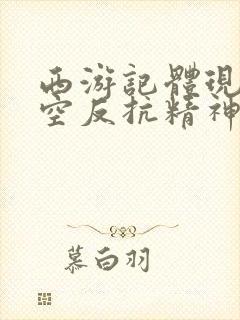 西游記體現
空反抗精神
慕白羽